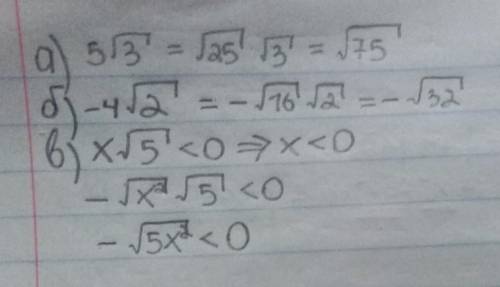 а) 5√3 = √25 √3 = √75
б) -4√2 = -√16 √2 = -√32
в) x√5 < 0 ⇒ x < 0
-√x² √5 < 0
-√5x² < 0